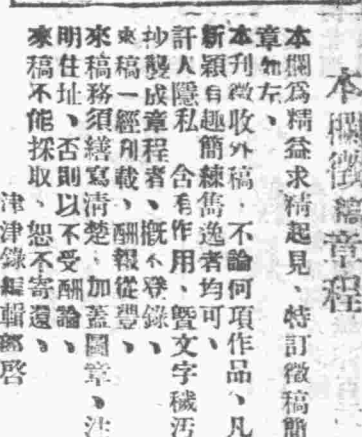 本欄徵稿章程
本欄爲精益求精起見、特訂徵稿簡
章如左、
本刊徵收外稿、不論何項作品、凡
新穎有趣簡練雋逸者均可、
訐人隱私　含有作用、暨文字穢汚
抄襲成章程者、概不登錄、
來稿一經刋載、酬報從豐、
來稿務須繕寫清楚、加蓋圖章、注
明住址、否則以不受酬論、
來稿不能採取、恕不寄還、
津津錄編輯部啓